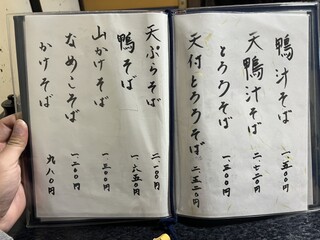 鴨汁そば 一、五〇〇円
天鴨汁そば 二、七二〇円
とろろそば 一、二〇〇円
天付とろろそば 二、五二〇円
天ぷらそば 二、一〇〇円
鴨そば 一、六五〇円
山かけそば 一、三〇〇円
なめこそば 一、二〇〇円
かけそば 九八〇円